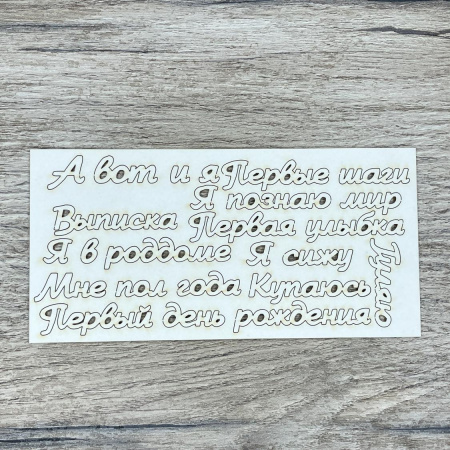 А вот и я Первые шаги
Я познаю мир
Выписка Первая улыбка
Я в роддоме Я сижу
Мне пол года Купаюсь
Первый день рождения
Гуляю